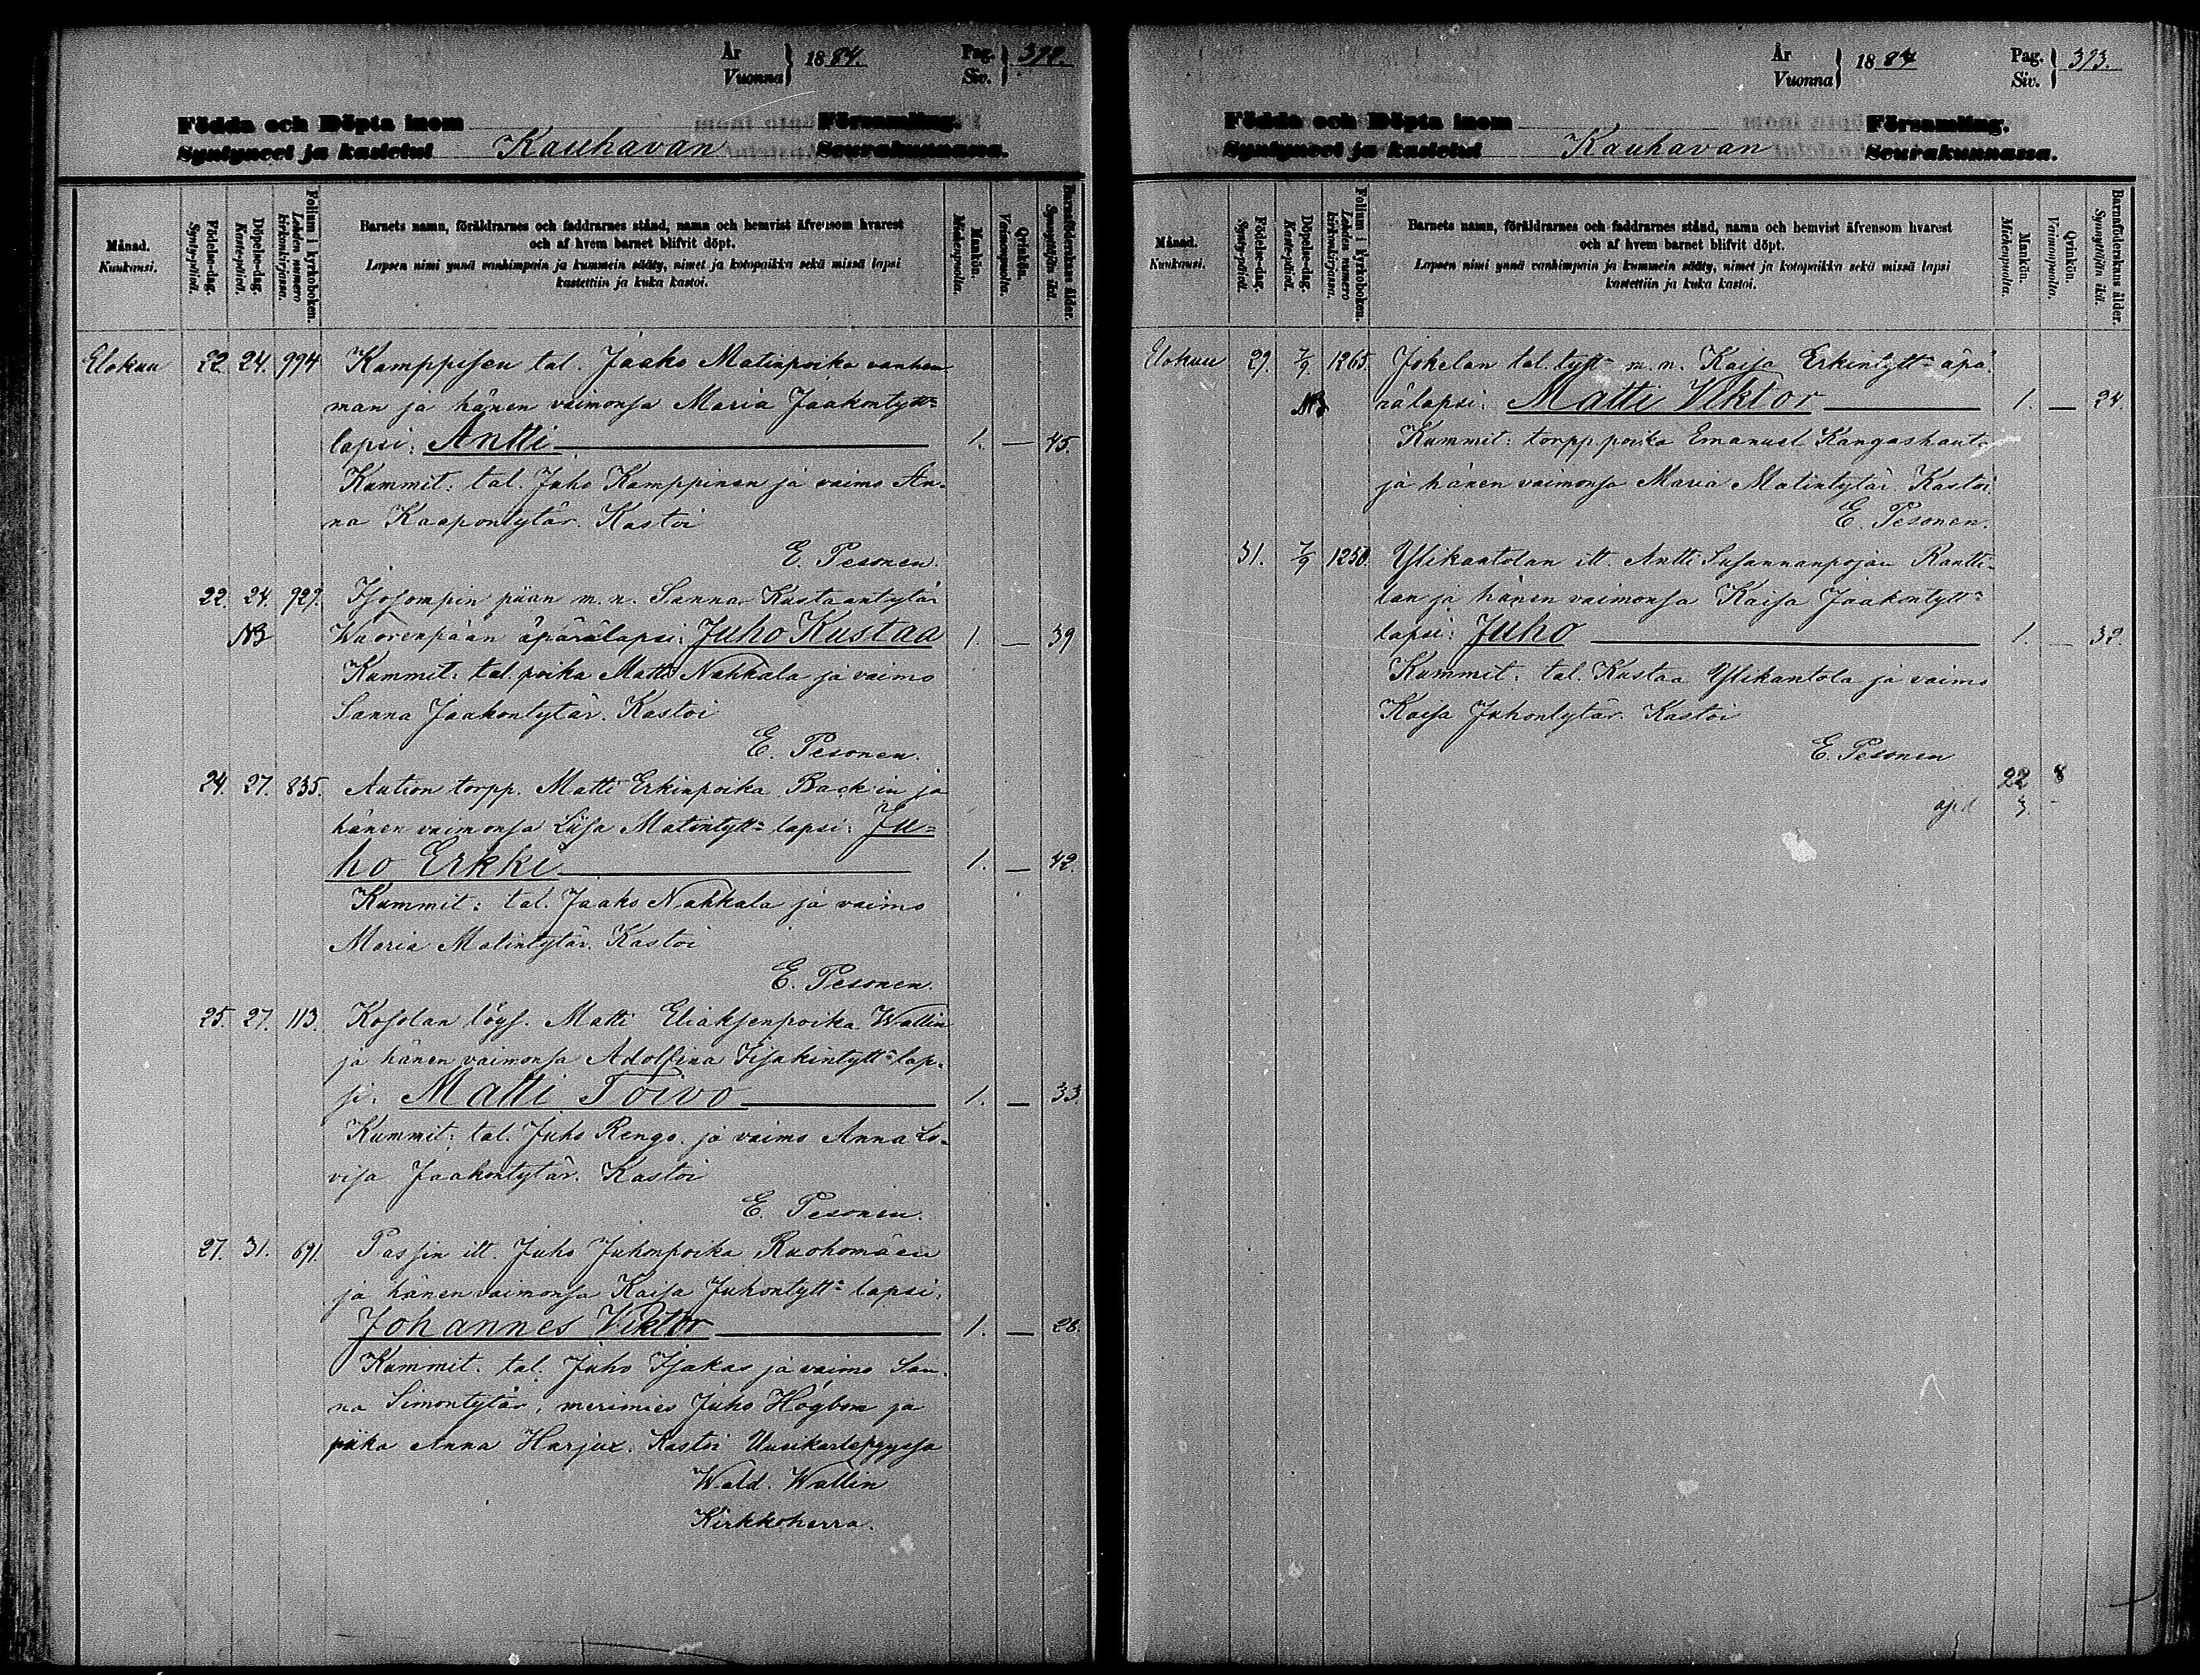 År
Vuonna } 1884.
Pag.
Siv. } 392.
Födda och Döpta inom Församling.
Syntyneet ja kastetut Kauhavan Seurakunnassa.
Månad.
Kuukausi.
Födelse-dag.
Synty-päivä.
Döpelse-dag.
Kaste-päivä.
Folium i kyrkoboken.
Lehden numero kirkonkirjassa.
Barnets namn, föräldrarnes och faddrarnes stånd, namn och hemvist äfvensom hvarest
och af hvem barnet blifvit döpt.
Lapsen nimi ynnä vanhimpain ja kummein sääty, nimet ja kotopaikka sekä missä lapsi
kastettiin ja kuka kastoi.
Mankön.
Miehenpuolia.
Qvinkön.
Vaimonpuolia.
Barnaföderskans ålder.
Synnyttäjän ikä.
Elokuu 22. 24. 994 Kamppisen tal. Jaako Matinpoika vanhem
man ja hänen vaimonsa Maria Jaakontytt=
lapsi: Antti 1. — 45.
Kummit: tal. Juho Kamppinen ja vaimo An-
na Kaapontytär. Kastoi
E. Pesonen.
22. 24. 929. Isosompin piian m. n. Sanna Kustaantytär
NB Wuorenpään äpärälapsi: Juho Kustaa 1. — 39
Kummit: tal. poika Matti Nahkala ja vaimo
Sanna Jaakontytär. Kastoi
E. Pesonen.
24. 27. 835. Aution torpp. Matti Erkinpoika Back'in ja
hänen vaimonsa Liisa Matintytt= lapsi: Ju=
ho Erkki 1. — 42.
Kummit: tal. Jaako Nahkala ja vaimo
Maria Matintytär. Kastoi
E. Pesonen.
25. 27. 113. Kosolan löys. Matti Eliaksenpoika Wallin
ja hänen vaimonsa Adolfina Iisakintytt= lap-
si: Matti Toivo 1. — 33.
Kummit: tal. Juho Rengo ja vaimo Anna Lo-
visa Jaakontytär. Kastoi
E. Pesonen.
27. 31. 691. Passin itt. Juho Juhonpoika Ruohomäen
ja hänen vaimonsa Kaisa Juhontytt= lapsi:
Johannes Viktor 1. — 28.
Kummit: tal. Juho Isakas ja vaimo San-
na Simontytär, merimies Juho Högbom ja
piika Anna Harjux. Kastoi Uusikarlepyyssa
Wald. Wallin
Kirkkoherra.
År
Vuonna } 1884
Pag.
Siv. } 393.
Födda och Döpta inom Församling.
Syntyneet ja kastetut Kauhavan Seurakunnassa.
Månad.
Kuukausi.
Födelse-dag.
Synty-päivä.
Döpelse-dag.
Kaste-päivä.
Folium i kyrkoboken.
Lehden numero kirkonkirjassa.
Barnets namn, föräldrarnes och faddrarnes stånd, namn och hemvist äfvensom hvarest
och af hvem barnet blifvit döpt.
Lapsen nimi ynnä vanhimpain ja kummein sääty, nimet ja kotopaikka sekä missä lapsi
kastettiin ja kuka kastoi.
Mankön.
Miehenpuolia.
Qvinkön.
Vaimonpuolia.
Barnaföderskans ålder.
Synnyttäjän ikä.
Elokuu 29. 7/9 1265. Jokelan tal. tytt= m. n. Kaisa Erkintytt= äpä-
NB rälapsi: Matti Viktor 1. — 24.
Kummit: torpp. poika Emanuel Kangashaut-
ja hänen vaimonsa Maria Matintytär. Kastoi
E. Pesonen.
31. 7/9 1250. Ylikantolan itt. Antti Susannanpojan Rantti-
lan ja hänen vaimonsa Kaisa Jaakontytt=
lapsi: Juho 1. — 32.
Kummit: tal. Kustaa Ylikantola ja vaimo
Kaisa Juhontytär. Kastoi
E. Pesonen
22 8
äpä 3. -